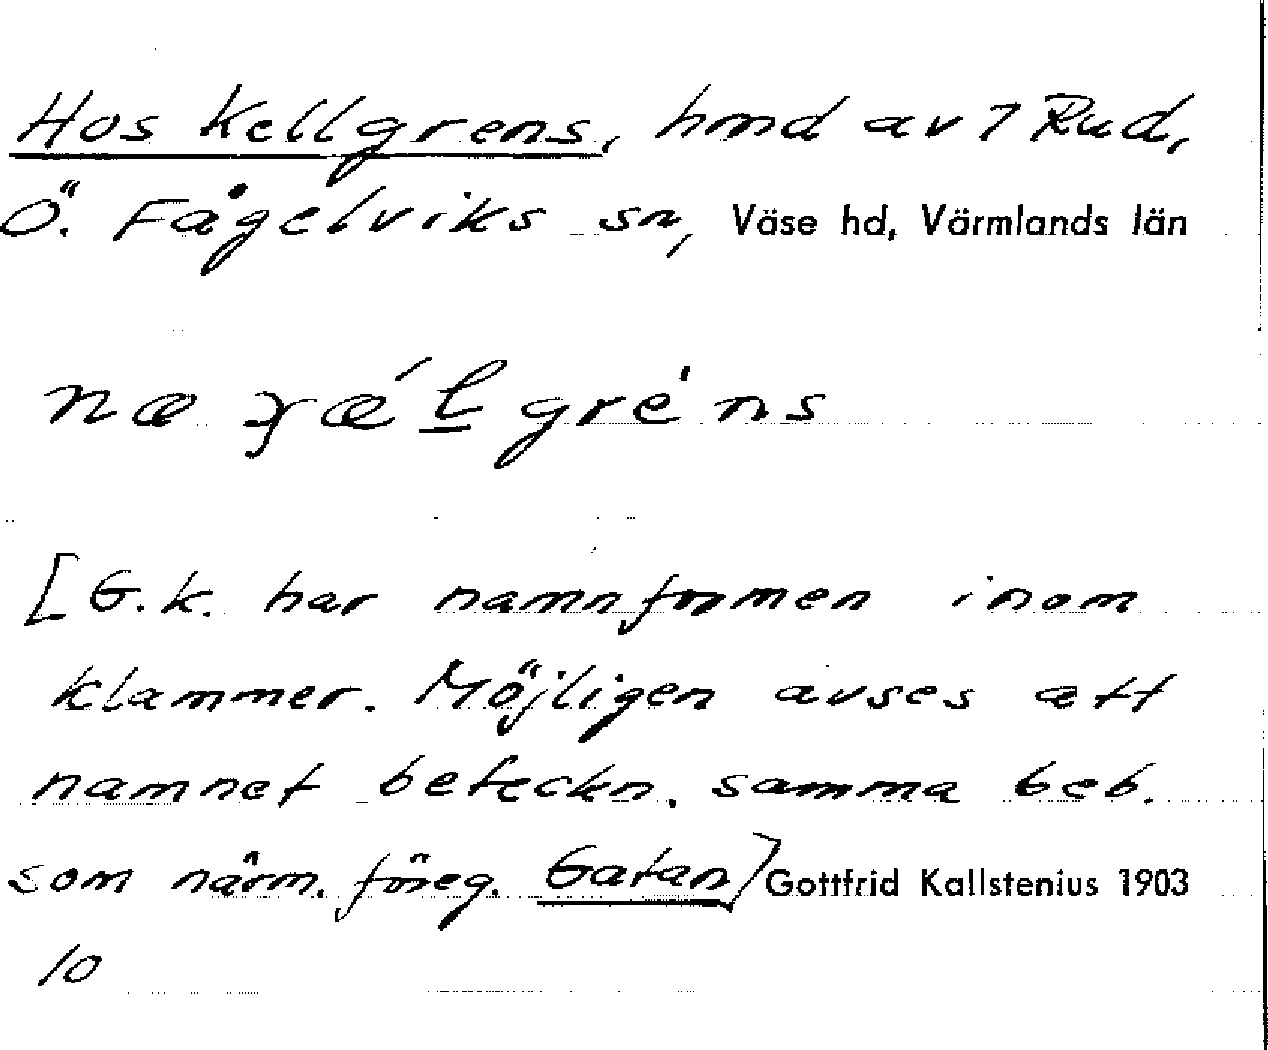 Hos Kellgrens, hmd av 7 Rud,
Ö. Fågelviks sn, Väse hd, Värmlands län
grens
[G.K. har namnformen inom
klammer. Möjligen avses att
namnet beteckn. samma beb.
som närm. föreg. Gatan] Gottfrid Kallstenius 1903
10